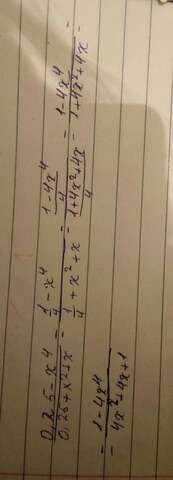 0,25-x⁴/0,25+x²+x = 1/4 - x⁴/1/4 + x² + x = 1-4x⁴/4/1+4x²+4x/4 = 1-4x⁴/1+4x²+4x =
= 1-4x⁴/4x²+4x+1